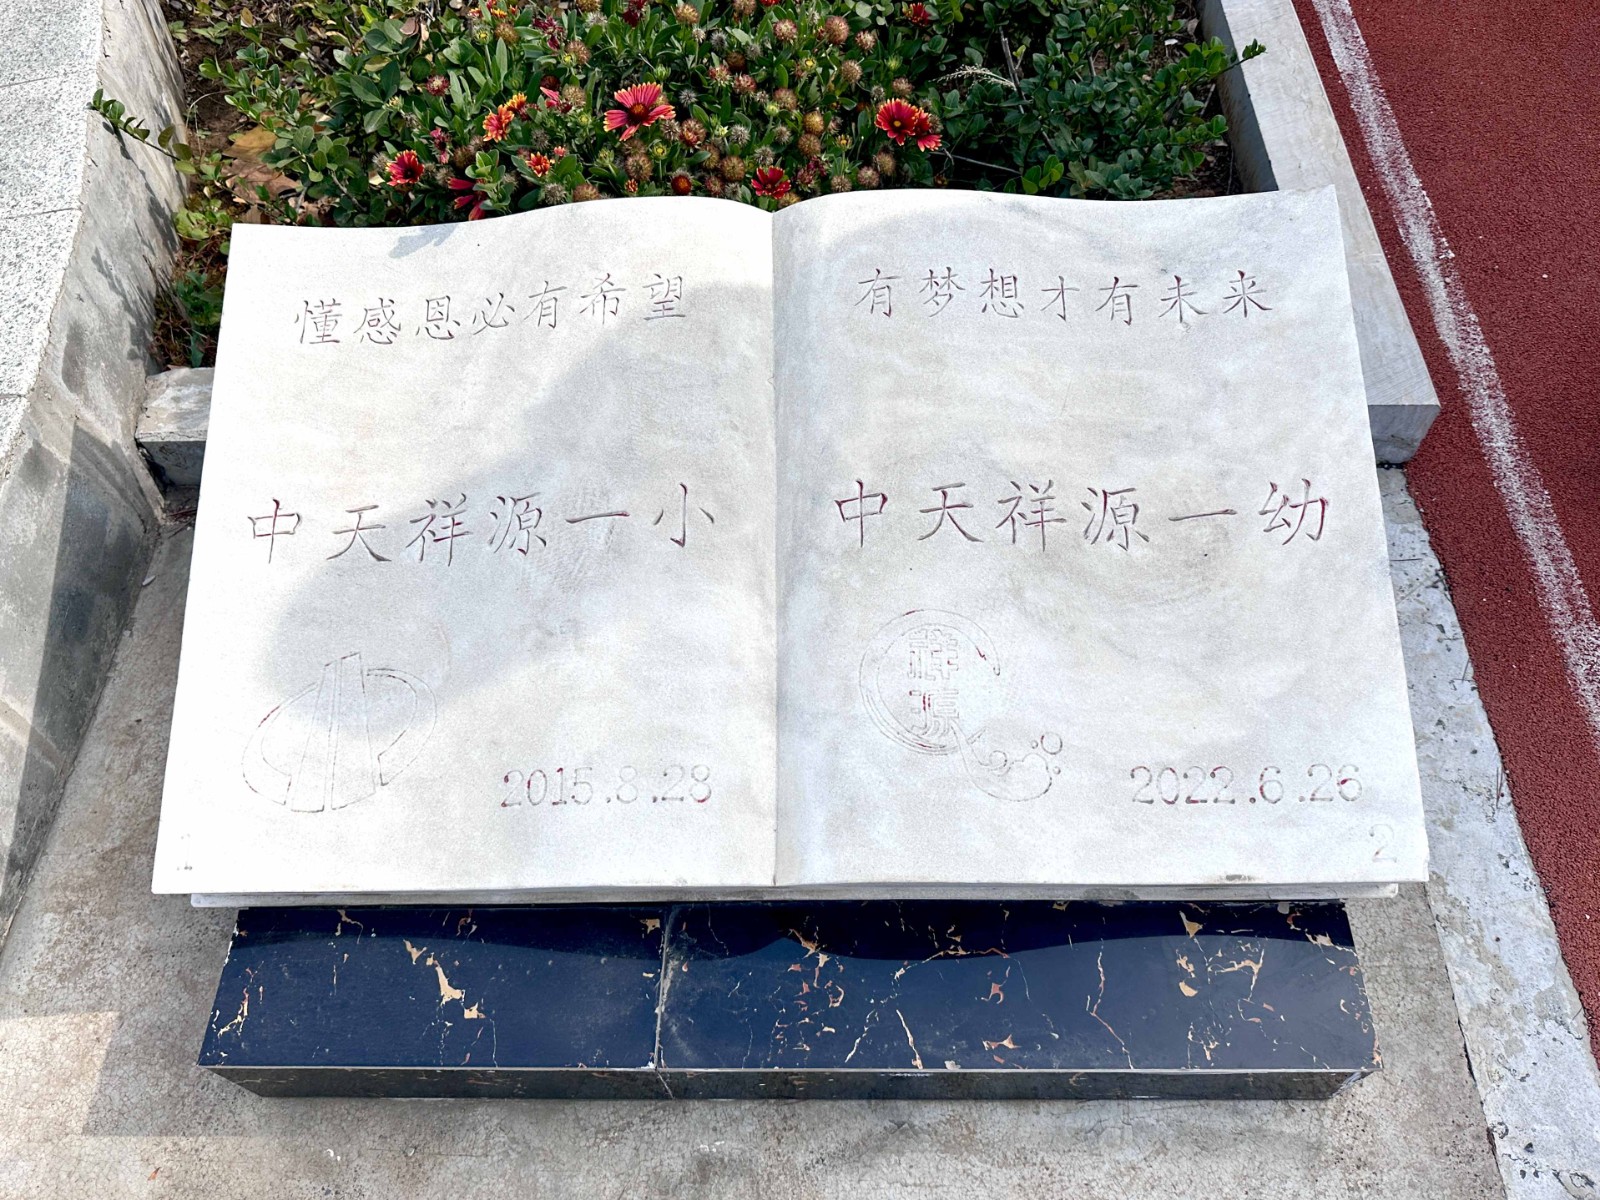 懂感恩必有希望
中天祥源一小
2015.8.28
1
有梦想才有未来
中天祥源一幼
祥源
2022.6.26
2